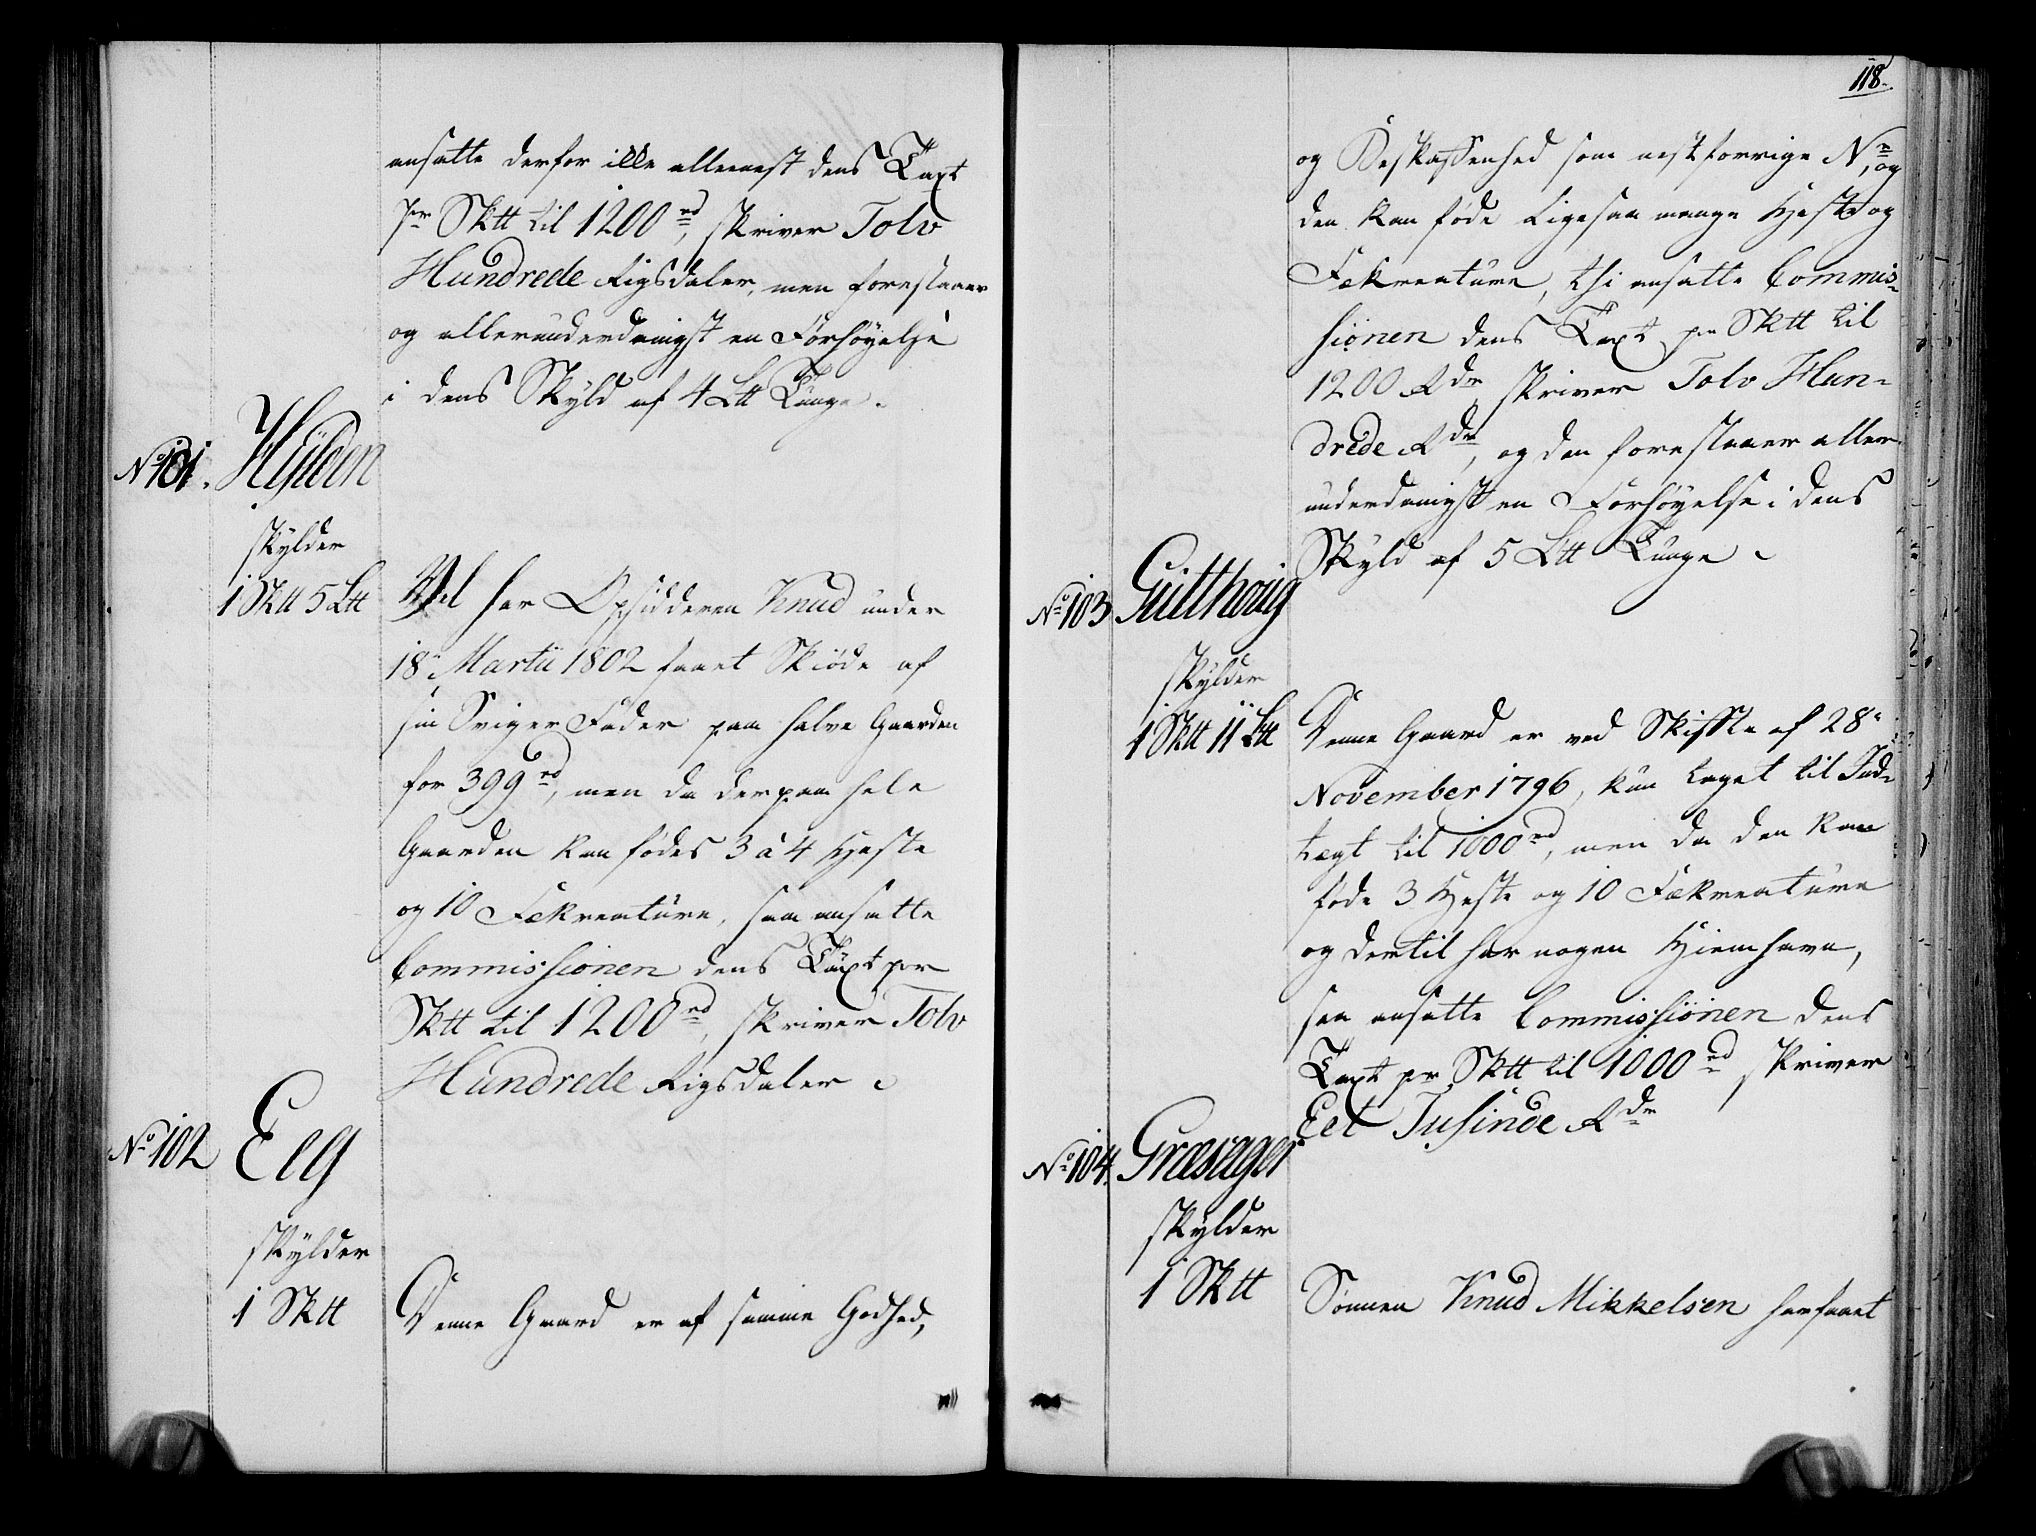 ansatte derfor ikke alleenest dens Taxt
pr Sktt til 1200 rd, skriver Tolv
Hundrede Rigsdaler, men forestaaer
og allerunderdanigst en Forhøyelse
i dens Skyld af 4 Ltt Tunge.
No 101. Hylden
skylder
1 Sktt 5 Ltt
Vel har Opsidderen Knud under
18 Martii 1802 faaet Skiøde af
sin Sviger Fader paa halve Gaarden
for 399 rd, men da derpaa hele
Gaarden kan fødes 3 à 4 Heste
og 10 Fækreature, saa ansatte
Commissionen dens Taxt pr
Sktt til 1200 rd, skriver Tolv
Hundrede Rigsdaler
No 102 Eeg
skylder
1 Sktt
Denne Gaard er af samme Godhed,
118.
og Beskaffenhed som nestforrige Nr, og
den kan føde ligesaa mange Heste og
Fækreature, thi ansatte Commis-
sionen dens Taxt pr Sktt til
1200 Rdr skriver Tolv Hun-
drede Rdr, og den forestaaer aller
underdanigst en Forhøyelse i dens
Skyld af 5 Ltt Tunge
No 103 Guldhoug
skylder
1 Sktt 11 Ltt
Denne Gaard er ved Skifte af 28
November 1796, kun taget til Ind-
tægt til 1000 rd, men da den kan
føde 3 Heste og 10 Fækreature
og dertil har nogen Hiemhavn,
saa ansatte Commissionen dens
Taxt pr Sktt til 1000 rd skriver
Eet Tusinde Rdr
No 104. Græsager
skylder
1 Sktt
Sønnen Knud Mikkelsen har faaet